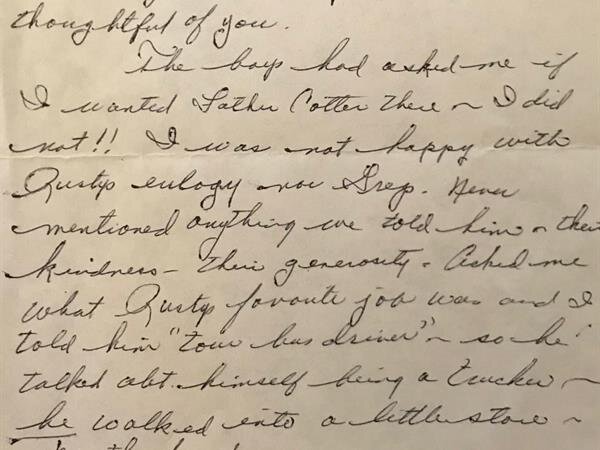 thoughtful of you.
The boys had asked me if
I wanted Father Cotter there ~ I did
not!! I was not happy with
Rustys eulogy nor Gregs. Never
mentioned anything we told him ~ their
kindness - their generosity. Asked me
what Rustys favorite job was and I
told him "tour bus driver" ~ so he
talked abt. himself being a trucker ~
he walked into a little store ~